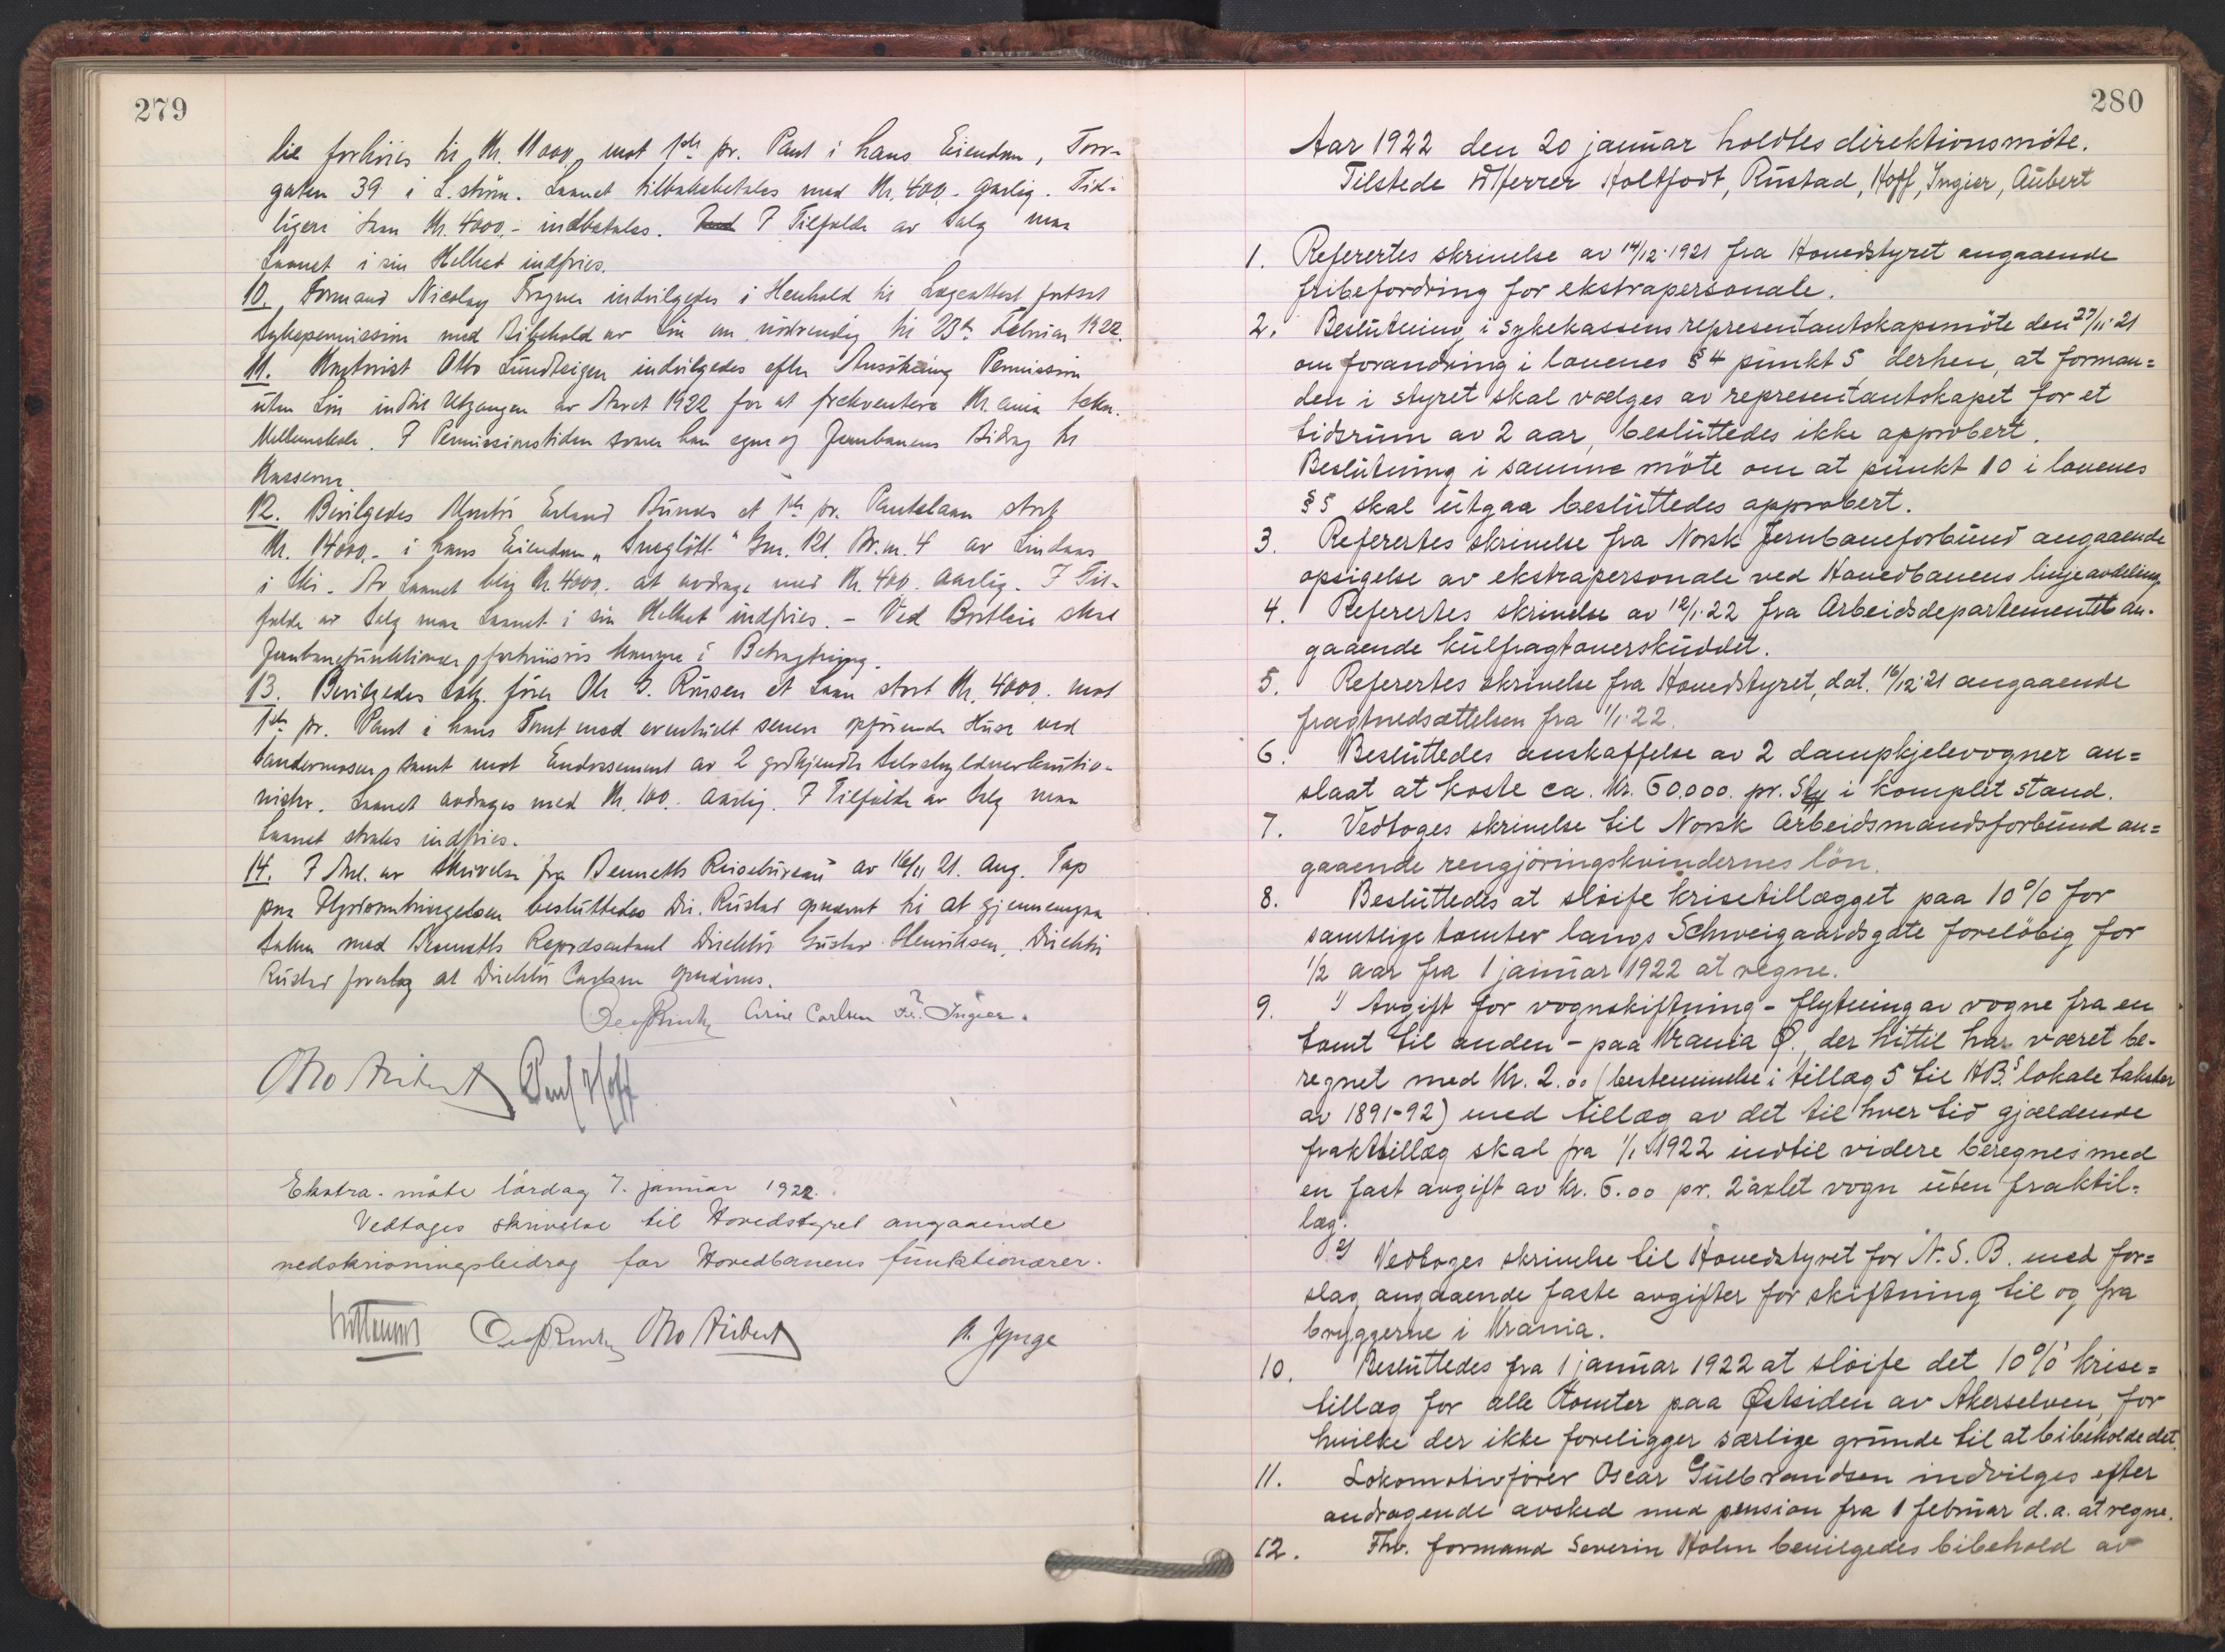 279
lie forhøies til Kr. 11000,- mot 1ste pr. Pant i hans Eiendom, Torv-
gaten 39 i L.strøm. Laanet tilbakebetales med Kr. 400.- aarlig. Tid-
ligere laan Kr. 4000,- indbetales. I Tilfælde av Salg maa
Laanet i sin Helhet indfries.
10. Formand Nicolay Trøgner indvilgedes i Henhold til Lægeattest fortsat
Sykepermission med Bibehold av Løn om nødvendig til 23de Februar 1922.
11. Kontorist Otto Lundteigen indvilgedes efter Ansøkning Permission
uten Løn indtil Utgangen av Aaret 1922 for at frekventere Kr.ania tekn.
Mellemskole. I Permissionstiden svarer han egne og Jernbanens Bidrag til
Kasserne.
12. Bevilgedes Montør Erland Bunæs et 1ste pr. Pantelaan stort
Kr. 14000.- i hans Eiendom " Gnr. 121. Br.nr. 4 av Lindaas
i Ski. Av Laanet blir Kr. 4000.- at avdrage med Kr. 400. aarlig. I Til-
fælde av Salg maa Laanet i sin Helhet indfries. - Ved Bortleie skal
Jernbanefunktionær fortrinsvis komme i Betragtning.
13. Bevilgedes Lok. fører Ole G. Ruusen et Laan stort Kr. 4000. mot
1ste pr. Pant i hans Tomt med eventuelt senere opførende Huse ved
Sandermosen, samt mot Endossement av 2 godkjendte Selvskyldnerkautio-
nister. Laanet avdrages med Kr. 100.- aarlig. I Tilfælde av Salg maa
Laanet straks indfries.
14. I Anl. av Skrivelse fra Bennetts Reisebureau av 16/11 21. Ang. Tap
paa besluttedes Dir. Rustad opnævnt til at gjennemgaa
Saken med Bennetts Repræsentant Direktør Gustav Henriksen. Direktør
Rustad foreslog at Direktør Carlsen opnævnes.
Arne Carlsen Fr. Ingier.
Otto Aubert Hoff
Ekstra-møte lørdag 7. januar 1922.
Vedtages skrivelse til Hovedstyret angaaende
nedskrivningsbidrag for Hovedbanens funktionærer.
Otto Aubert
280
Aar 1922 den 20 januar holdtes direktionsmöte.
Tilstede d'Herrer Holtfodt, Rustad, Hoff, Ingier, Aubert
1. Refererтes skrivelse av 14/12-1921 fra Hovedstyret angaaende
fribefordring for ekstrapersonale.
2. Beslutning i sykekassens representantskapsmöte den 27/11-21
om forandring i lovenes § 4 punkt 5 derhen, at forman=
den i styret skal vælges av representantskapet for et
tidsrum av 2 aar, besluttedes ikke approbert.
Beslutning i samme möte om at punkt 10 i lovenes
§ 5 skal utgaa besluttedes approbert.
3. Refererтes skrivelse fra Norsk Jernbaneforbund angaaende
opsigelse av ekstrapersonale ved Hovedbanens linjeavdeling.
4. Refererтes skrivelse av 12/1-22 fra Arbeidsdepartementet an-
gaaende kulfragtoverskuddet.
5. Refererтes skrivelse fra Hovedstyret, dat. 16/12-21 angaaende
fragtnedsættelsen fra 1/1-22.
6. Besluttedes anskaffelse av 2 dampkjelevogner an=
slaat at koste ca. Kr. 60.000. pr. Stk i komplet stand.
7. Vedtoges skrivelse til Norsk Arbeidsmandsforbund an=
gaaende rengjöringskvindernes lön.
8. Besluttedes at slöife krisetillægget paa 10% for
samtlige tomter langs Schweigaardsgate foreløbig for
1/2 aar fra 1 januar 1922 at regne.
9. 1) Avgift for vognskiftning - flytning av vogne fra en
tomt til anden - paa Krania Ø., der hittil har været be-
regnet med Kr. 2.00 (bestemmelse i tillæg 5 til HB.s lokale takster
av 1891-92) med tillæg av det til hver tid gjældende
frakttillæg skal fra 1/1 1922 indtil videre beregnes med
en fast avgift av kr. 6.00 pr. 2 axlet vogn uten fraktil=
læg.
2) Vedtoges skrivelse til Hovedstyret for N.S.B. med for=
slag angaaende faste avgifter for skiftning til og fra
bryggerne i Krania.
10. Besluttedes fra 1 januar 1922 at slöife det 10% krise=
tillæg for alle tomter paa Østsiden av Akerselven, for
hvilke der ikke foreligger særlige grunde til at bibeholde det.
11. Lokomotivförer Oscar Gulbrandsen indvilges efter
andragende avsked med pension fra 1 februar d.a. at regne.
12. Fhv. formand Severin Holm bevilgedes bibehold av